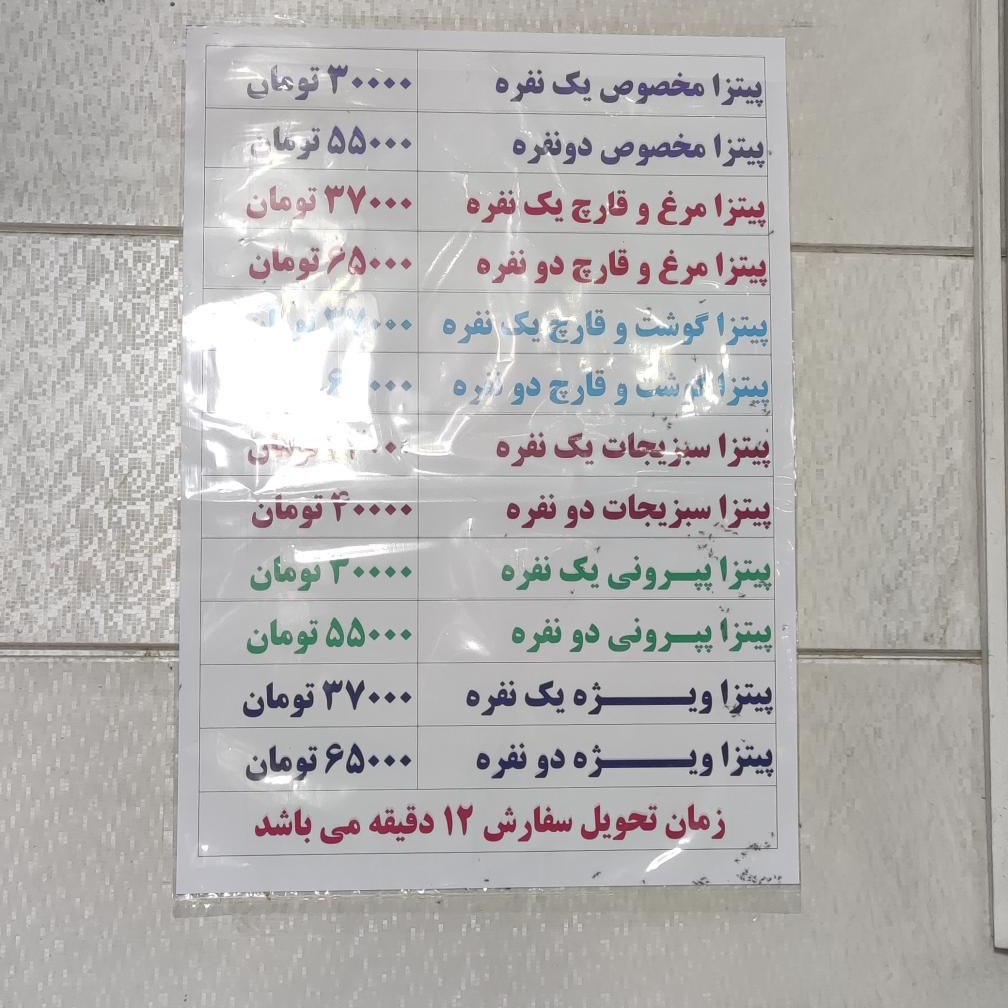 پیتزا مخصوص یک نفره ۳۰۰۰۰ تومان
پیتزا مخصوص دونفره ۵۵۰۰۰ تومان
پیتزا مرغ و قارچ یک نفره ۳۷۰۰۰ تومان
پیتزا مرغ و قارچ دو نفره ۶۵۰۰۰ تومان
پیتزا گوشت و قارچ یک نفره
پیتزا گوشت و قارچ دو نفره
پیتزا سبزیجات یک نفره
پیتزا سبزیجات دو نفره ۴۰۰۰۰ تومان
پیتزا پپــرونی یک نفره ۳۰۰۰۰ تومان
پیتزا پپــرونی دو نفره ۵۵۰۰۰ تومان
پیتزا ویــــــــژه یک نفره ۳۷۰۰۰ تومان
پیتزا ویــــــــژه دو نفره ۶۵۰۰۰ تومان
زمان تحویل سفارش ۱۲ دقیقه می باشد